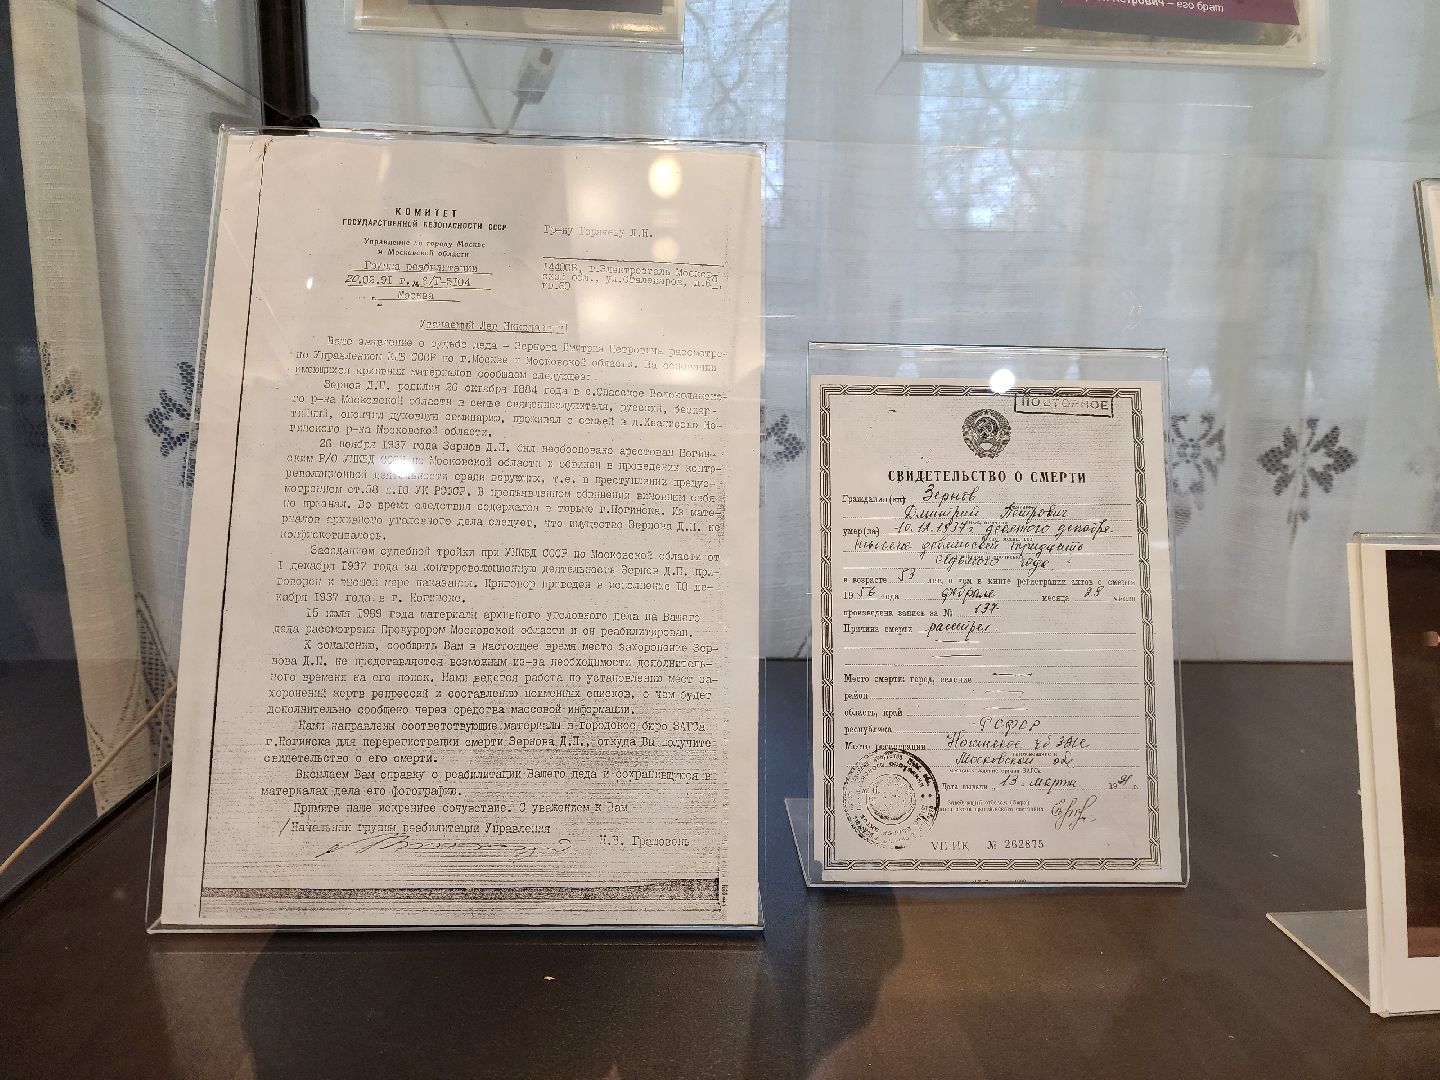 Петрович – его брат
КОМИТЕТ
ГОСУДАРСТВЕННОЙ БЕЗОПАСНОСТИ СССР
Управление по городу Москве
и Московской области
Группа реабилитации
20.02.91 г. №
Москва
Гр-ну Горячеву Л.Н.
г.Электросталь Московс
кой обл., ул.
кв.80
Уважаемый Лев Николаевич!
Ваше заявление о судьбе деда – Зернова Дмитрия Петровича рассмотре-
но Управлением КГБ СССР по г.Москве и Московской области. На основании
имеющихся архивных материалов сообщаем следующее:
Зернов Д.П. родился 26 октября 1884 года в с.Спасское Волоколамско-
го р-на Московской области в семье священнослужителя, русский, беспар-
тийный, окончил духовную семинарию, проживал с семьей в д. Но-
гинского р-на Московской области.
26 ноября 1937 года Зернов Д.П. был необоснованно арестован Ногин-
ским Р/О УНКВД СССР по Московской области и обвинен в проведении контр-
революционной деятельности среди верующих, т.е. в преступлении предус-
мотренном ст.58 п.10 УК РСФСР. В предъявленном обвинении виновным себя
не признал. Во время следствия содержался в тюрьме г.Ногинска. Из мате-
риалов архивного уголовного дела следует, что имущество Зернова Д.П. не
конфисковывалось.
Заседанием судебной тройки при УНКВД СССР по Московской области от
1 декабря 1937 года за контрреволюционную деятельность Зернов Д.П. при-
говорен к высшей мере наказания. Приговор приведен в исполнение 10 де-
кабря 1937 года в г. Ногинске.
15 июля 1989 года материалы архивного уголовного дела на Вашего
деда рассмотрены Прокурором Московской области и он реабилитирован.
К сожалению, сообщить Вам в настоящее время место захоронение Зер-
нова Д.П. не представляется возможным из-за необходимости дополнитель-
ного времени на его поиск. Нами ведется работа по установлению мест за-
хоронений жертв репрессий и составлению поименных списков, о чем будет
дополнительно сообщено через средства массовой информации.
Нами направлены соответствующие материалы в Городское бюро ЗАГСа
г.Ногинска для перерегистрации смерти Зернова Д.П., откуда Вы получите
свидетельство о его смерти.
Высылаем Вам справку о реабилитации Вашего деда и сохранившуюся в
материалах дела его фотографию.
Примите наше искреннее сочувствие. С уважением к Вам
Начальник группы реабилитации Управления
Н.В. Грашовень
ПОВТОРНОЕ
СВИДЕТЕЛЬСТВО О СМЕРТИ
Гражданин(ка) Зернов
Дмитрий Петрович
умер(ла) 10.12.1937 г десятого декабря
тысяча девятьсот тридцать
седьмого года
в возрасте 53 лет, о чем в книге регистрации актов о смерти
1956 года февраля месяца 29 числа
произведена запись за № 137
Причина смерти расстрел
Место смерти: город, селение
район
область, край
республика РСФСР
Место регистрации Ногинское г/б ЗАГС
Московской обл
Дата выдачи 13 марта 1991 г.
№ 262875